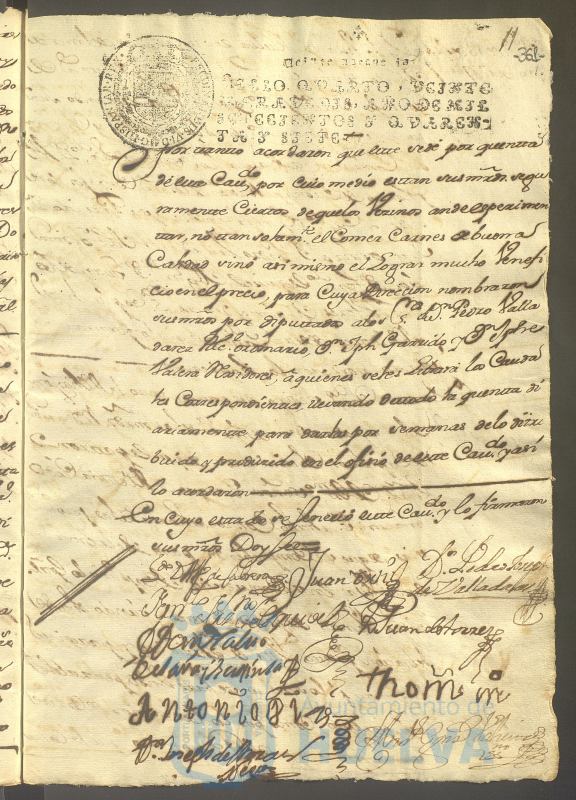 11
361
SELLO QVARTO, VEINTE
MARAVEDIS, AÑO DE MIL
SETECIENTOS Y QVAREN-
TA Y SIETE
Por tanto acordaron que este sede por quenta
de este Cau.do por cuio medio estan sus mrds. segu
ramente Ciertos de que los Vezinos an de experimen
tar, no tan solam.te el Comer Carnes de buena
Calidad sino asi mismo el Lograr mucho Venefi
cio en el precio, para Cuya Direccion nombraron
sus mrds por diputados a los S.es D.n Pedro Valla
dares Alc.e ordinario, D.n Jph Garrido y D.n
Valera Rexidores, a quienes se les Librará los Cauda
les Correspondientes llevando de todo la quenta di
ariamente para darlas por semanas de lo distri
buido y produzido en el ofisio de este Cau.do y asi
lo acordaron
En Cuyo estado se fenecio este Cau.do y lo firmaron
sus mrds Doy fee
Juan
de Valladares
Juan de torres
Antonio
Thom.s
D.n Joseph de
Ayuntamiento de
HUELVA